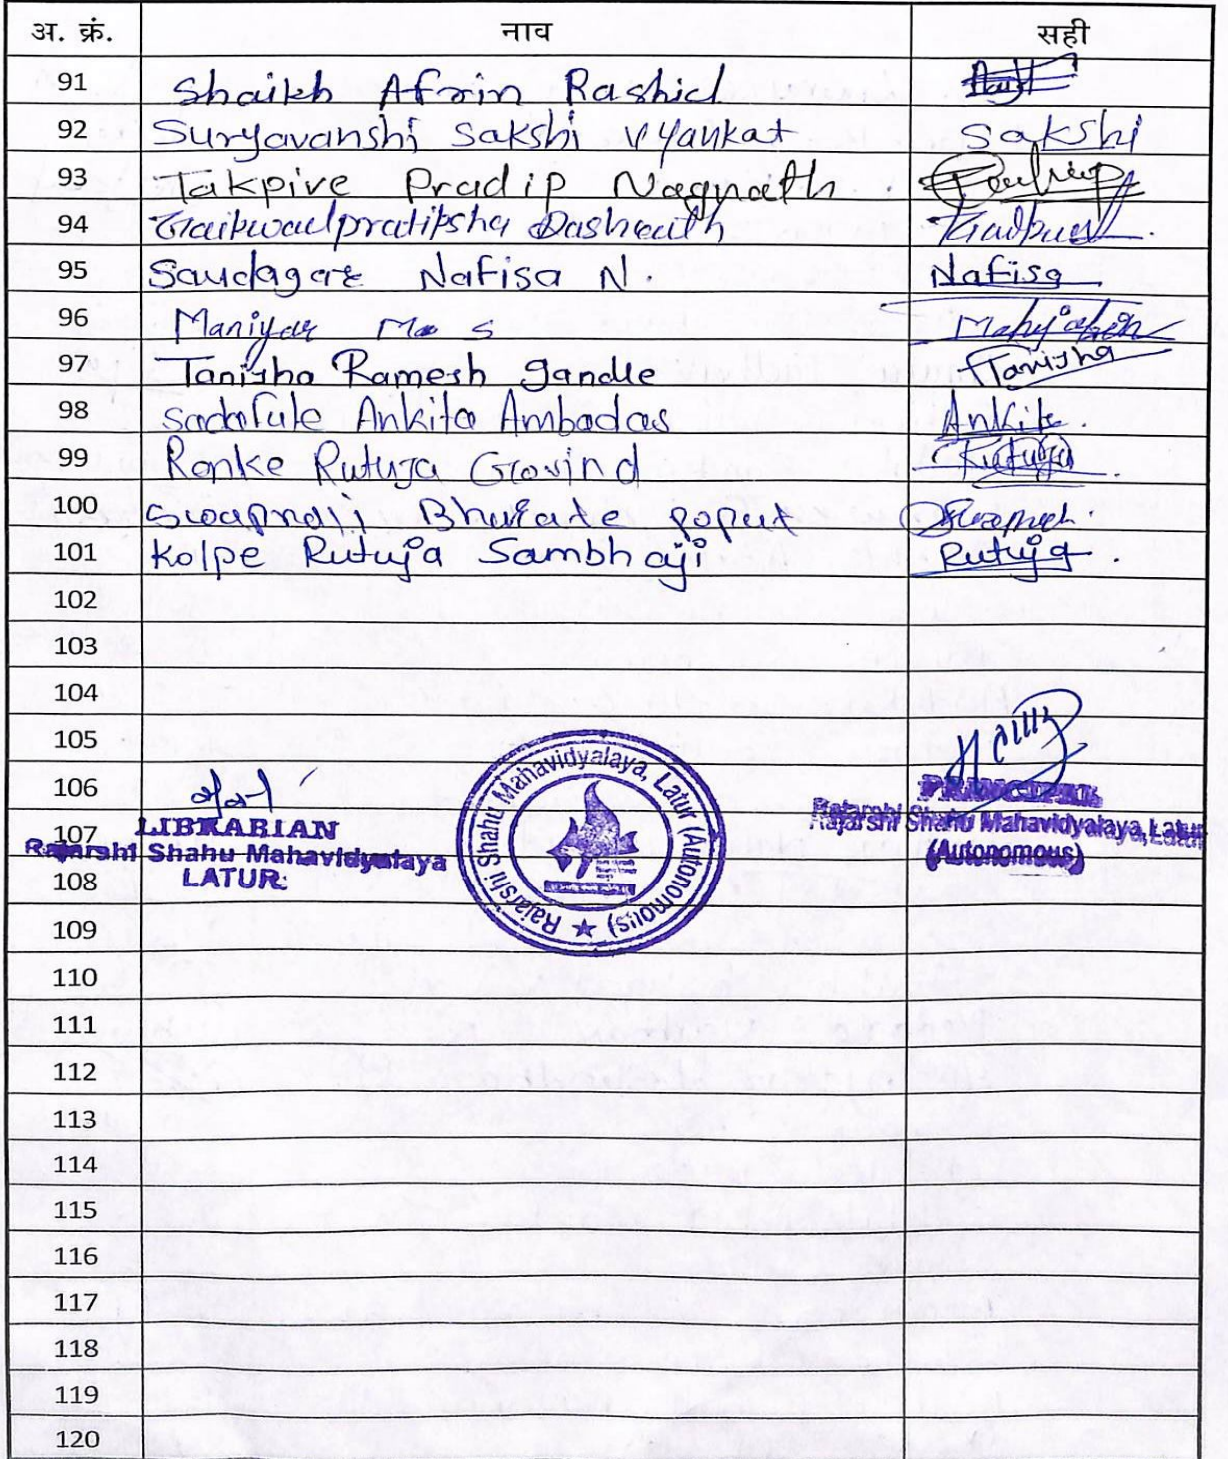 अ. क्रं. नाव सही
91 Shaikh Afrin Rashid
92 Suryavanshi Sakshi Vyankat Sakshi
93 Takpire Pradip Nagnath Pradip
94 Gaikwad pratiksha Dasharath Gaikwad
95 Saudagar Nafisa N. Nafisa
96 Maniyar S Mahejabin
97 Tanisha Ramesh Gandle Tanisha
98 Sadafule Ankita Ambadas Ankita.
99 Ranke Rutuja Govind Rutuja
100 Swapnali Bhurate poput
101 Kolpe Rutuja Sambhaji Rutuja.
102
103
104
105
106
107
108
109
110
111
112
113
114
115
116
117
118
119
120
LIBRARIAN
Rajarshi Shahu Mahavidyalaya
LATUR.
Rajarshi Shahu Mahavidyalaya, Latur (Autonomous)
PRINCIPAL
Rajarshi Shahu Mahavidyalaya, Latur
(Autonomous)